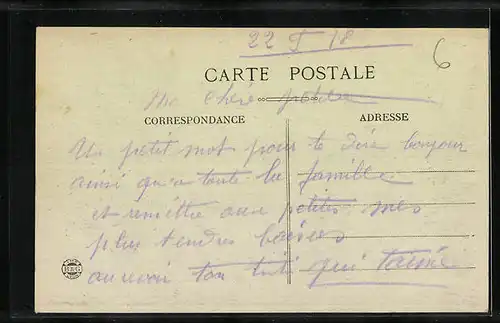 22 5 18
6
CARTE POSTALE
Ma chère
CORRESPONDANCE
ADRESSE
Un petit mot pour te dire bonjour
ainsi qu'a toute la famille
et remettre aux petites mes
plus tendres baisers
au revoir ton titi qui t'aime
B&G